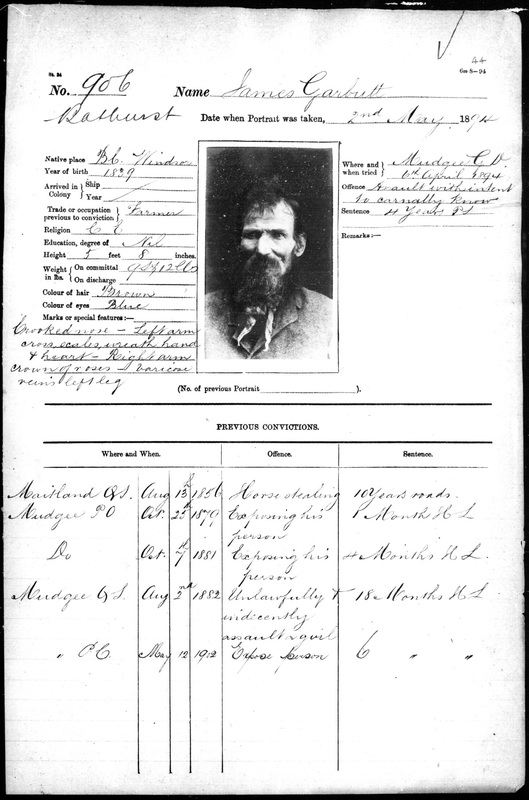 44
6m 8–94
No. 906 Name James Garbutt
Bathurst Date when Portrait was taken, 2nd May 1894
Native place B.C. Windsor
Year of birth 1839
Arrived in Colony { Ship
Year
Trade or occupation previous to conviction } Farmer
Religion C E
Education, degree of Nil
Height 5 feet 8 inches.
Weight in lbs. { On committal 9 St 12 lbs
On discharge
Colour of hair Brown
Colour of eyes Blue
Marks or special features:—
Crooked nose – Left arm
cross, scales, wreath, hand
& heart – Right arm
crown of roses – Varicose
veins left leg
Where and when tried } Mudgee
April 1894
Offence Assault with intent
to carnally know
Sentence 4 Years
Remarks:—
(No. of previous Portrait ).
PREVIOUS CONVICTIONS.
Where and When. Offence. Sentence.
Maitland Aug 13th 1856 Horse stealing 10 Years roads.
Mudgee P O Oct. 25th 1879 Exposing his person 1 Month H L
Do Oct. 7th 1881 Exposing his person 4 Months H L.
Mudgee Q S Aug 2nd 1882 Unlawfully & indicently assault a girl 18 Months H L
„ P C. May 12 1902 Expose Person 6 „ „